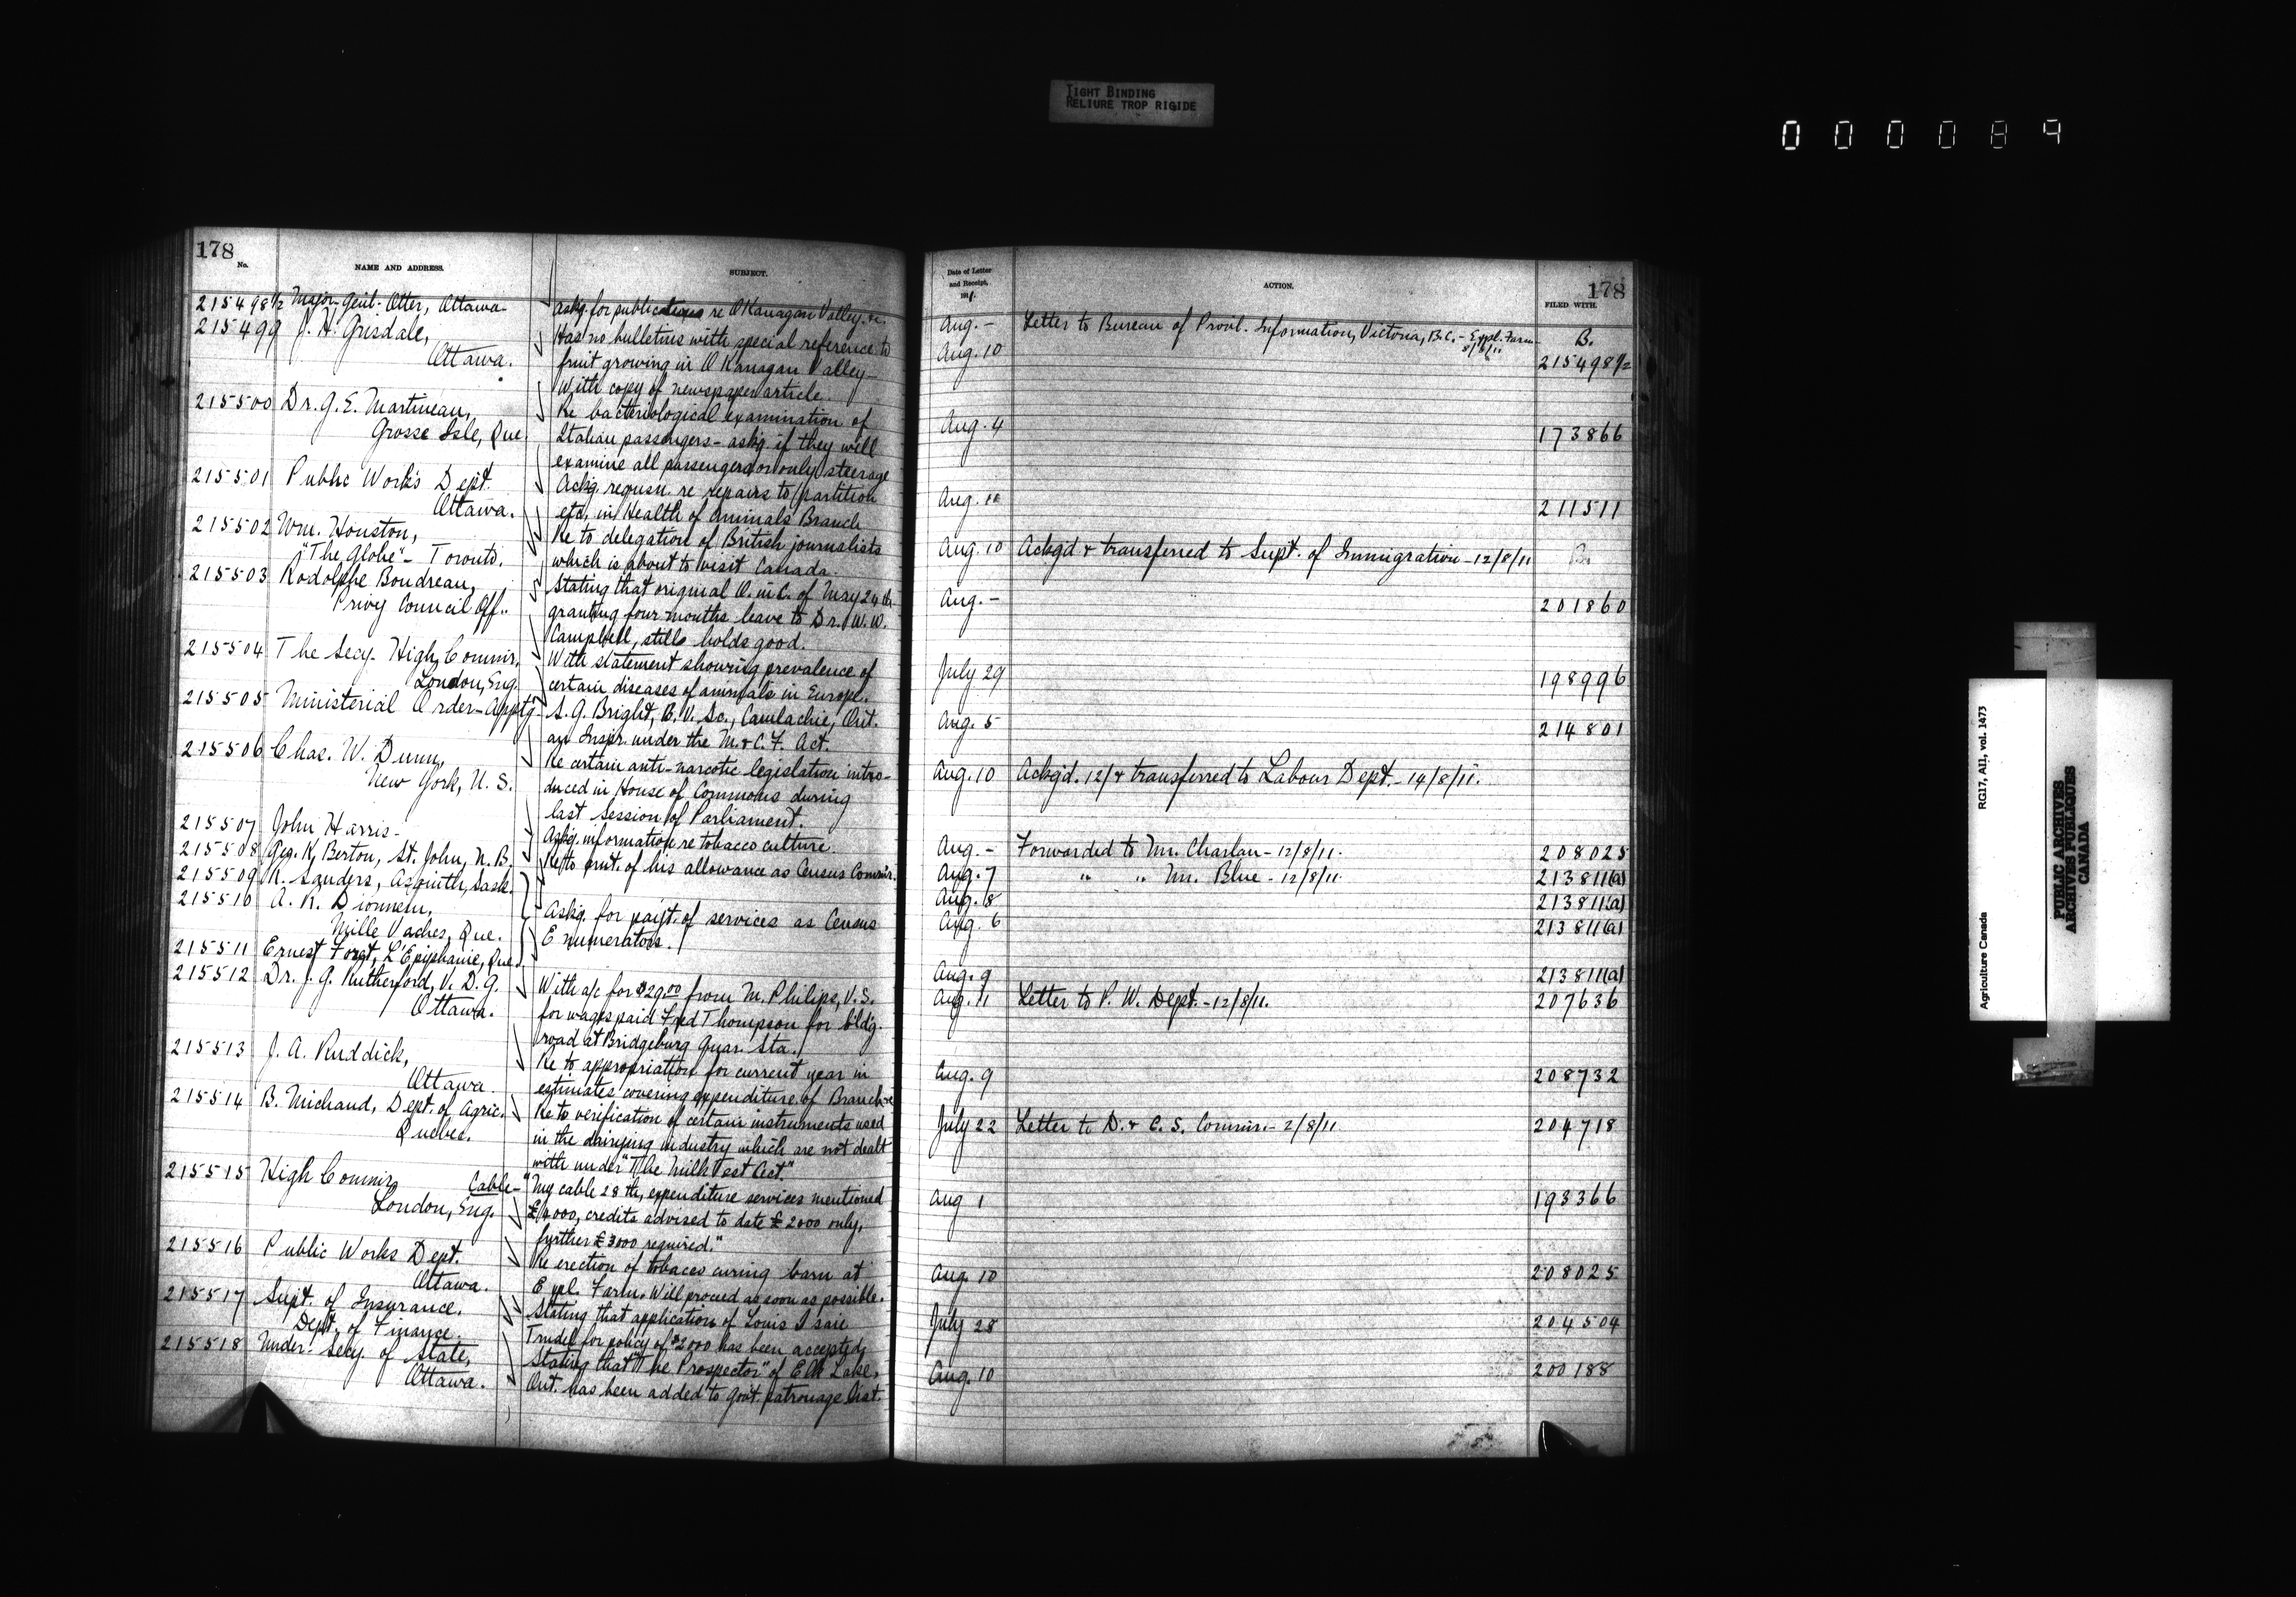 TIGHT BINDING
RELIURE TROP RIGIDE
000089
178
No.
NAME AND ADDRESS.
SUBJECT.
215498½ Major-Genl. Otter, Ottawa. Askg. for publications re OKanagan Valley, &c.
215499 J. H. Grisdale, Has no bulletins with special reference to
Ottawa. fruit growing in OKanagan Valley—
With copy of newspaper article.
215500 Dr. G. E. Martineau, Re bacteriological examination of
Grosse Isle, Que. Italian passengers – askg. if they will
examine all passengers or only steerage
215501 Public Works Dept. Ackg. requsn. re repairs to partition
Ottawa. etc, in Health of Animals Branch
215502 Wm. Houston, Re to delegation of British journalists
"The Globe" – Toronto. which is about to visit Canada.
215503 Rodolphe Boudreau, Stating that original O. in C. of May 24th
Privy Council Off.. granting four months leave to Dr. W. W.
Campbell, stills holds good.
215504 The Secy. High Commr, With statement showing prevalence of
London, Eng. certain diseases of animals in Europe.
215505 Ministerial Order – Apptg – S. G. Bright, B. V. Sc., Camlachie, Ont.
an Inspr. under the M. & C. F. Act.
215506 Chas. W. Dunn, Re certain anti-narcotic legislation intro-
New York, U. S. duced in House of Commons during
last session of Parliament.
215507 John Harris – Askg. information re tobacco culture.
215508 Geo. K. Berton, St. John, N. B. Re to pmt. of his allowance as Census Commr.
215509 R. Sanders, Asquith, Sask.
215510 A. R. Dionneau, Askg. for paymt. of services as Census
Mille Vaches, Que. Enumerators.
215511 Ernest Forget, L'Epiphanie, Que.
215512 Dr. J. G. Rutherford, V. D. G. With a/c for $29.00 from M. Philips, V. S.
Ottawa. for wages paid Fred Thompson for bldg.
road at Bridgeburg Quar. Sta.
215513 J. A. Ruddick, Re to appropriation for current year in
Ottawa. estimates covering expenditure of Branch
215514 B. Michaud, Dept. of Agric. Re to verification of certain instruments used
Quebec. in the dairying industry which are not dealt
with under "The Milk Test Act."
215515 High Commr, Cable – "My cable 28th, expenditure services mentioned
London, Eng. £4000, credits advised to date £2000 only,
further £3000 required."
215516 Public Works Dept. Re erection of tobacco curing barn at
Ottawa. Expl. Farm. Will proceed as soon as possible.
215517 Supt. of Insurance. Stating that application of Louis Isaie
Dept. of Finance. Trudel for policy of $2000 has been accepted
215518 Under-Secy. of State, Stating that "The Prospector" of Elk Lake,
Ottawa. Ont. has been added to Govt. patronage list.
Date of Letter
and Receipt,
1911.
ACTION.
178
FILED WITH.
Aug. – Letter to Bureau of Provl. Information, Victoria, B.C. – Expl. Farm – B.
8/8/11
Aug. 10 215498½
Aug. 4 173866
Aug. 11 211511
Aug. 10 Ackgd & transferred to Supt. of Immigration – 12/8/11 B.
Aug. – 201860
July 29 198996
Aug. 5 214801
Aug. 10 Ackgd. 12/ & transferred to Labour Dept. – 14/8/11.
Aug. – Forwarded to Mr. Charlan – 12/8/11. 208025
Aug. 7 " " Mr. Blue – 12/8/11. 213811(a)
Aug. 8 213811(a)
Aug. 6 213811(a)
Aug. 9 213811(a)
Aug. 11 Letter to P. W. Dept. – 12/8/11. 207636
Aug. 9 208732
July 22 Letter to D. & C. S. Commr – 2/8/11 204718
Aug 1 193366
Aug. 10 208025
July 28 204504
Aug. 10 200188
Agriculture Canada RG17, AII, vol. 1473
PUBLIC ARCHIVES
ARCHIVES PUBLIQUES
CANADA